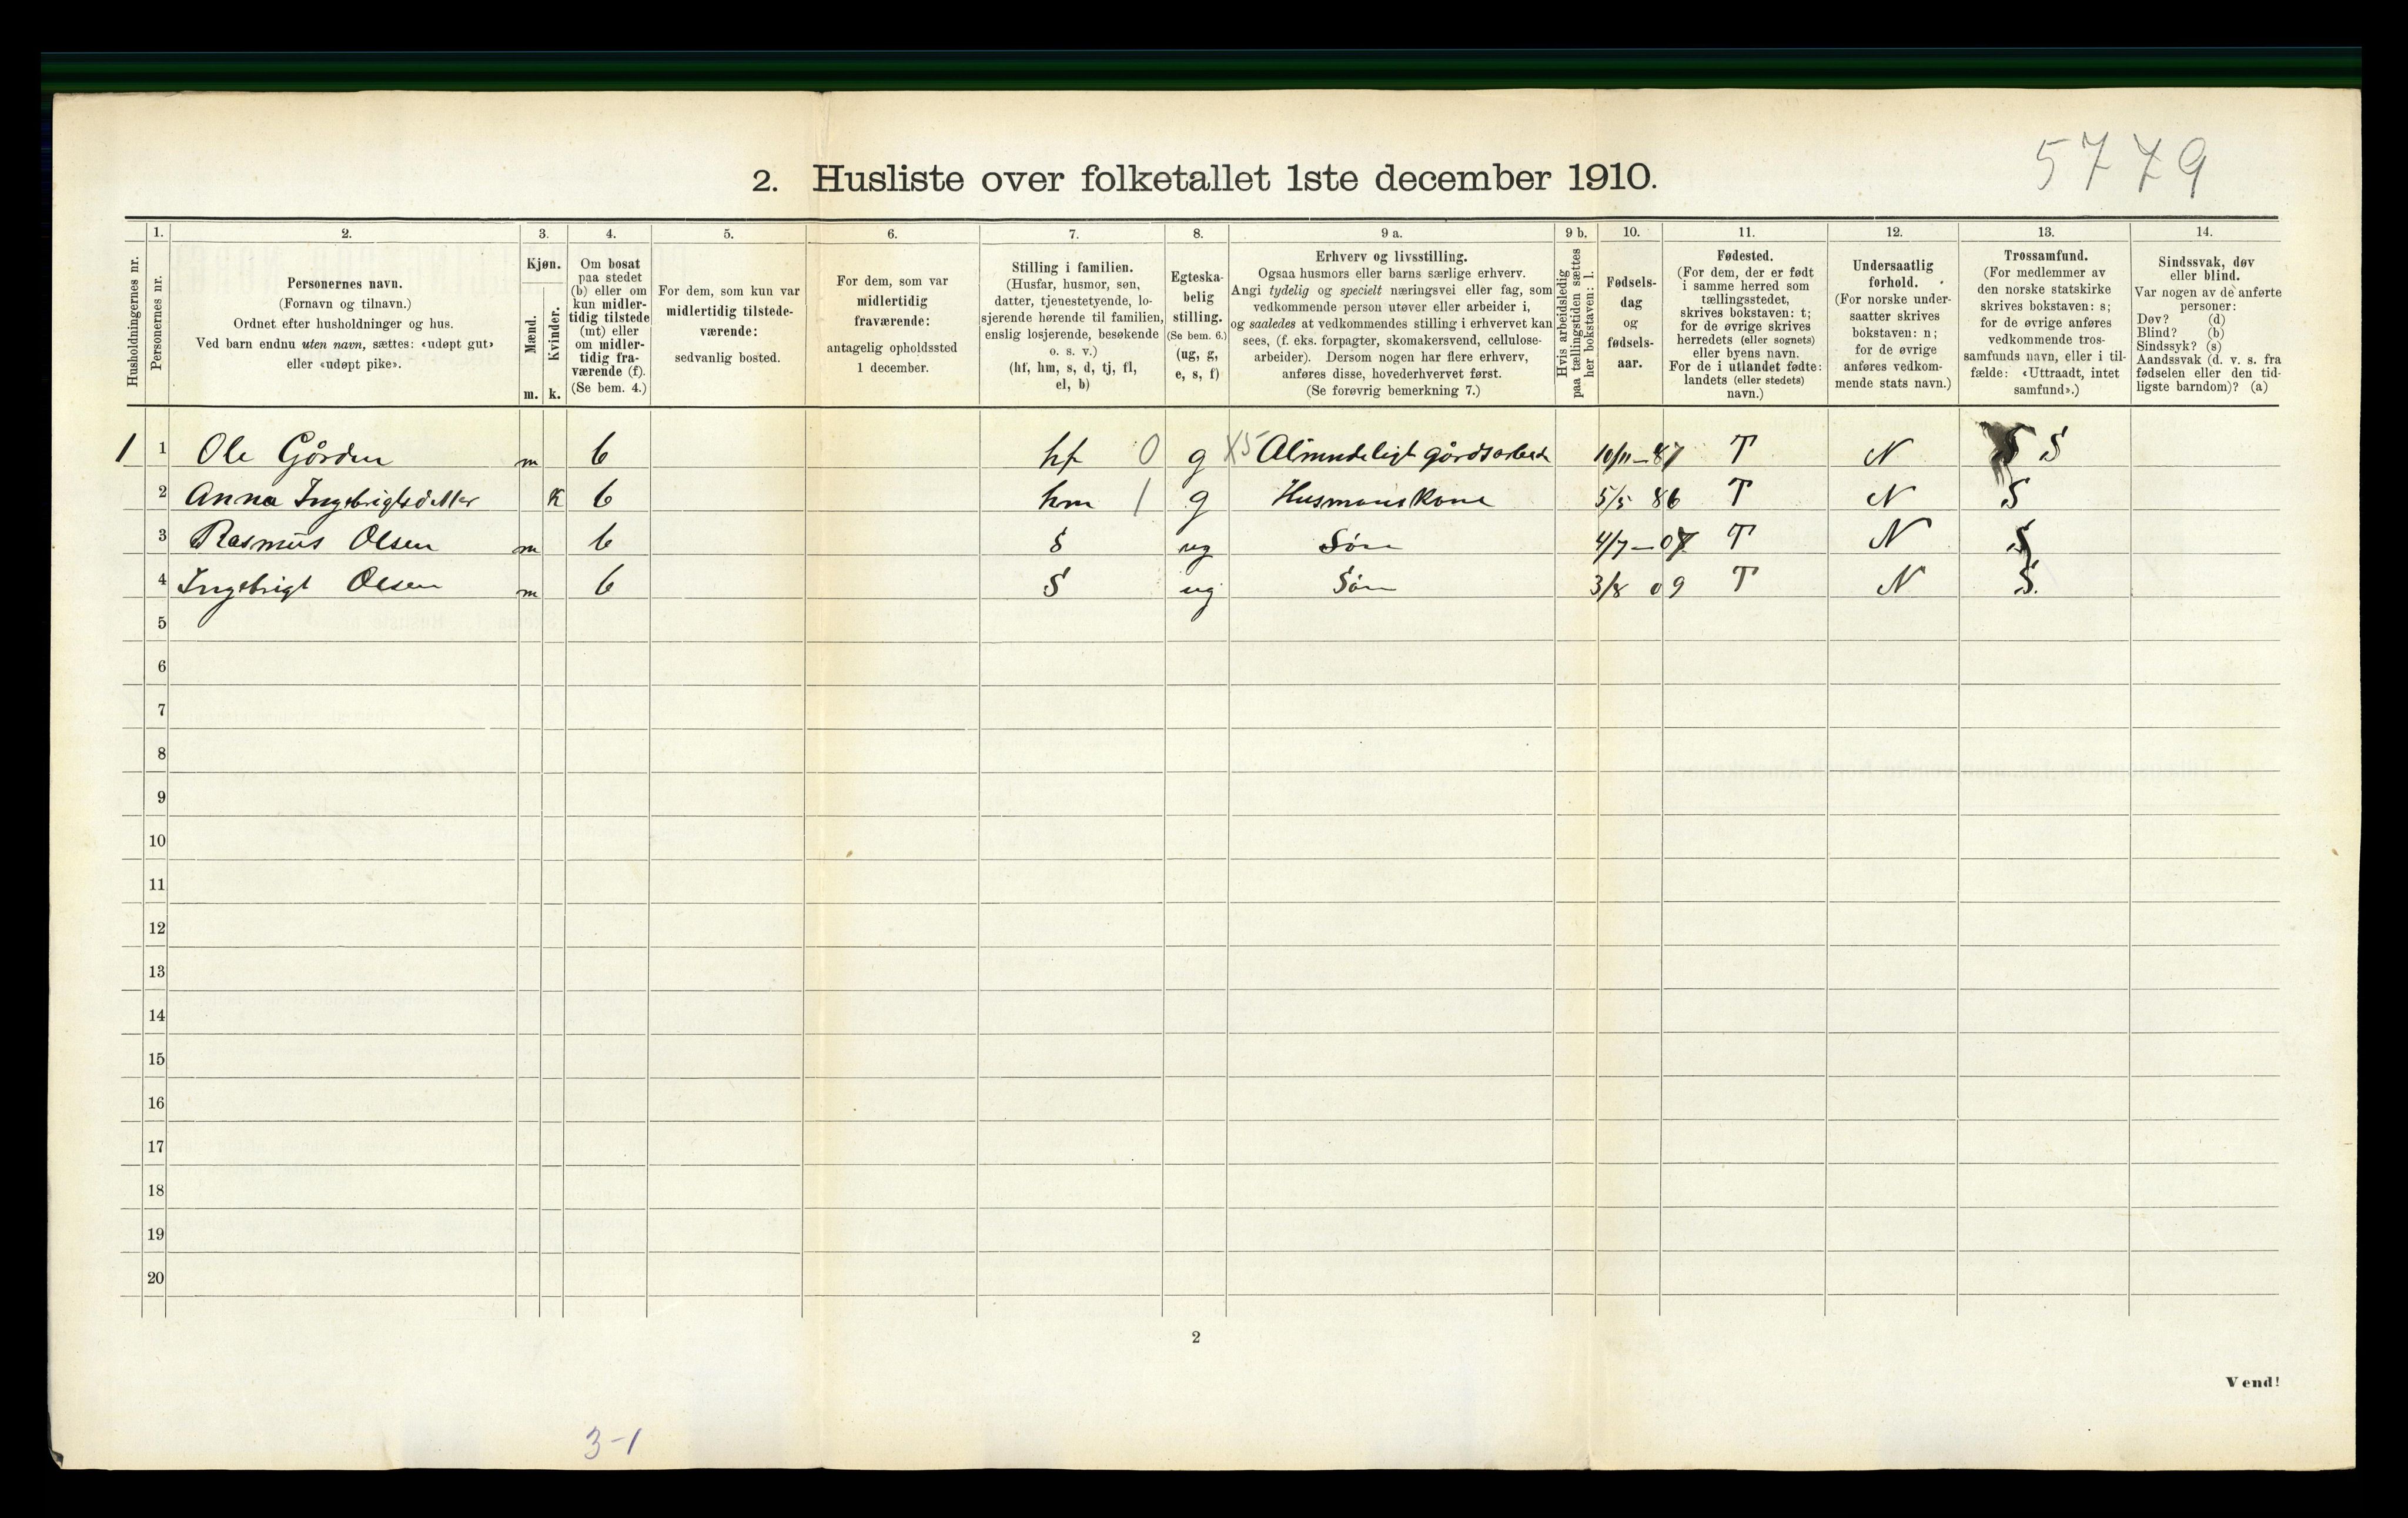 5779
2. Husliste over folketallet 1ste december 1910.
Husholdningernes nr.
1.
Personernes nr.
2.
Personernes navn.
(Fornavn og tilnavn.)
Ordnet efter husholdninger og hus.
Ved barn endnu uten navn, sættes: «udøpt gut»
eller «udøpt pike».
3.
Kjøn.
Mænd.
Kvinder.
m. k.
4.
Om bosat
paa stedet
(b) eller om
kun midler-
tidig tilstede
(mt) eller
om midler-
tidig fra-
værende (f).
(Se bem. 4.)
5.
For dem, som kun var
midlertidig tilstede-
værende:
sedvanlig bosted.
6.
For dem, som var
midlertidig
fraværende:
antagelig opholdssted
1 december.
7.
Stilling i familien.
(Husfar, husmor, søn,
datter, tjenestetyende, lo-
sjerende hørende til familien,
enslig losjerende, besøkende
o. s. v.)
(hf, hm, s, d, tj, fl,
el, b)
8.
Egteska-
belig
stilling.
(Se bem. 6.)
(ug, g,
e, s, f)
9 a.
Erhverv og livsstilling.
Ogsaa husmors eller barns særlige erhverv.
Angi tydelig og specielt næringsvei eller fag, som
vedkommende person utøver eller arbeider i,
og saaledes at vedkommendes stilling i erhvervet kan
sees, (f. eks. forpagter, skomakersvend, cellulose-
arbeider). Dersom nogen har flere erhverv,
anføres disse, hovederhvervet først.
(Se forøvrig bemerkning 7.)
9 b.
Hvis arbeidsledig
paa tællingstiden sættes
her bokstaven: l.
10.
Fødsels-
dag
og
fødsels-
aar.
11.
Fødested.
(For dem, der er født
i samme herred som
tællingsstedet,
skrives bokstaven: t;
for de øvrige skrives
herredets (eller sognets)
eller byens navn.
For de i utlandet fødte:
landets (eller stedets)
navn.)
12.
Undersaatlig
forhold.
(For norske under-
saatter skrives
bokstaven: n;
for de øvrige
anføres vedkom-
mende stats navn.)
13.
Trossamfund.
(For medlemmer av
den norske statskirke
skrives bokstaven: s;
for de øvrige anføres
vedkommende tros-
samfunds navn, eller i til-
fælde: «Uttraadt, intet
samfund».)
14.
Sindssvak, døv
eller blind.
Var nogen av de anførte
personer:
Døv? (d)
Blind? (b)
Sindssyk? (s)
Aandssvak (d. v. s. fra
fødselen eller den tid-
ligste barndom)? (a)
1 1 Ole Gården m b hf 0 g X5 Almindeligt gårdsarbeide 10/11-87 T N S S
2 Anna Ingebrigtsdatter K b hm 1 g Husmanskone 5/5 86 T N S
3 Rasmus Olsen m b S ug Søn 4/7-07 T N S
4 Ingebrigt Olsen m b S ug Søn 3/8 09 T N S.
5
6
7
8
9
10
11
12
13
14
15
16
17
18
19
20
2
Vend!
3-1